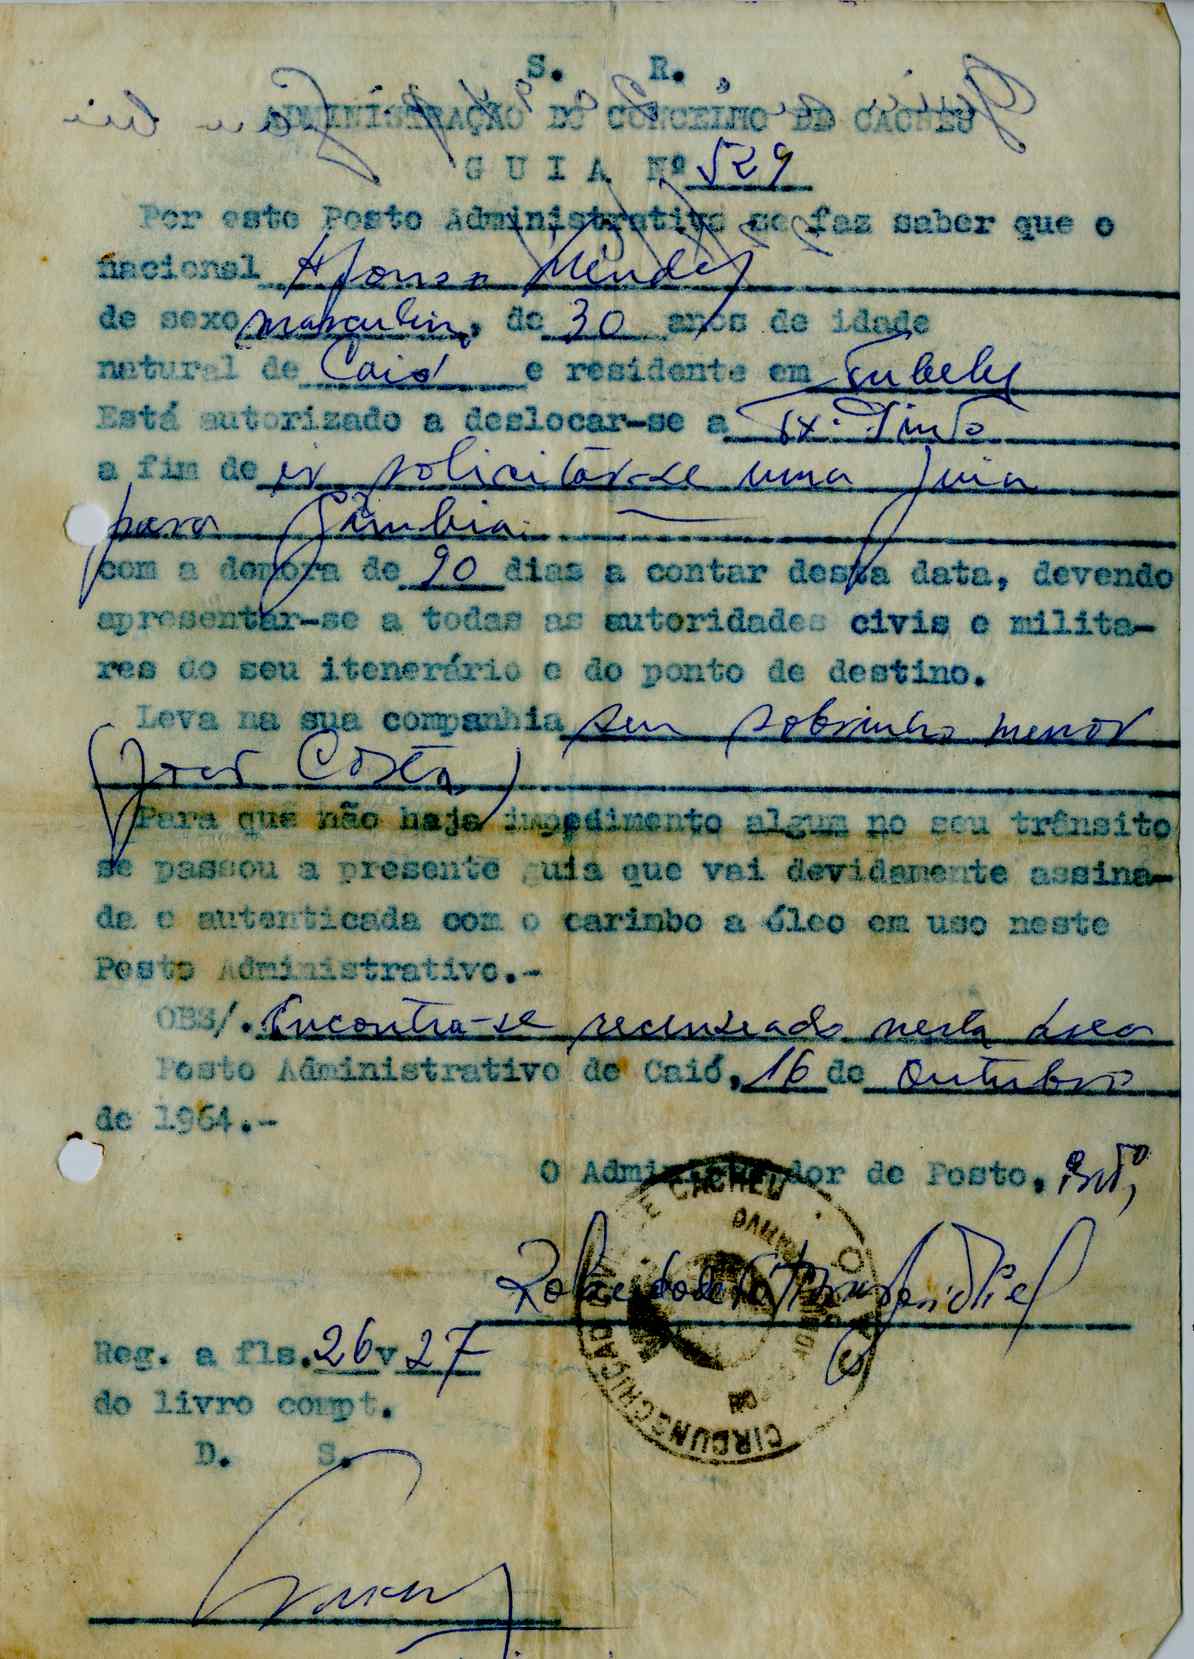 S. R.
ADMINISTRAÇÃO DO CONCELHO DE CACHEU
GUIA Nº 529
Por este Posto Administrativo se faz saber que o
nacional Afonso Mendes
de sexo masculino, de 30 anos de idade
natural de Caió e residente em
Está autorizado a deslocar-se a Tx. Pinto
a fim de ir solicitar-se uma guia
para Gâmbia.
com a demora de 90 dias a contar desta data, devendo
apresentar-se a todas as autoridades civis e milita-
res do seu itenerário e do ponto de destino.
Leva na sua companhia seu sobrinho menor
(José Costa)
Para que não haja impedimento algum no seu trânsito
se passou a presente guia que vai devidamente assina-
da e autenticada com o carimbo a óleo em uso neste
Posto Administrativo.-
OBS/. Encontra-se recenseado nesta área
Posto Administrativo de Caió, 16 de Outubro
de 1964.-
O Administrador de Posto,
CIRCUNSCRIÇÃO DE CACHEU
CAIÓ
Reg. a fls. 26 v 27
do livro compt.
D. S.